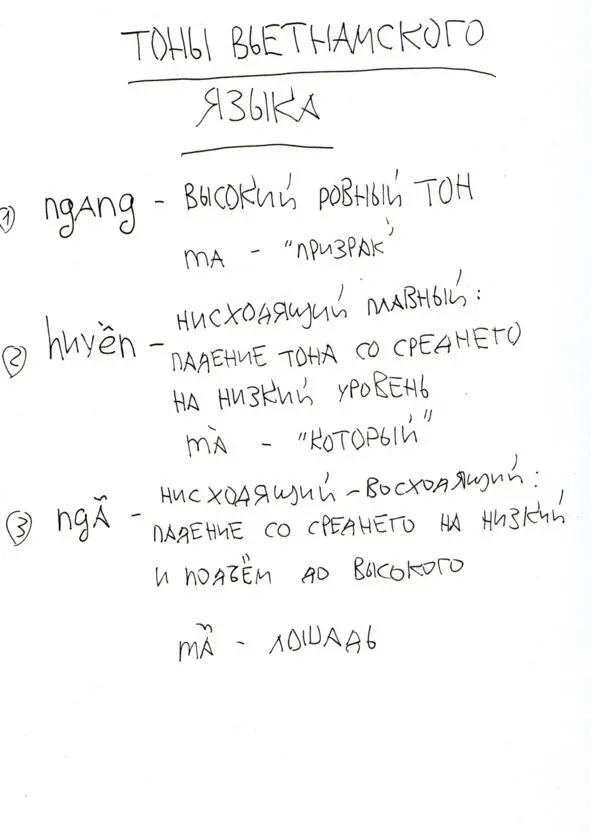 ТОНЫ ВЬЕТНАМСКОГО
ЯЗЫКА
1 ngAng - ВЫСОКИЙ РОВНЫЙ ТОН
mA - "ПРИЗРАК"
2 huyền - НИСХОДЯЩИЙ ПЛАВНЫЙ:
ПАДЕНИЕ ТОНА СО СРЕДНЕГО
НА НИЗКИЙ УРОВЕНЬ
mÀ - "КОТОРЫЙ"
3 ngÃ - НИСХОДЯЩИЙ-ВОСХОДЯЩИЙ:
ПАДЕНИЕ СО СРЕДНЕГО НА НИЗКИЙ
И ПОДЪЁМ ДО ВЫСОКОГО
mÃ - ЛОШАДЬ